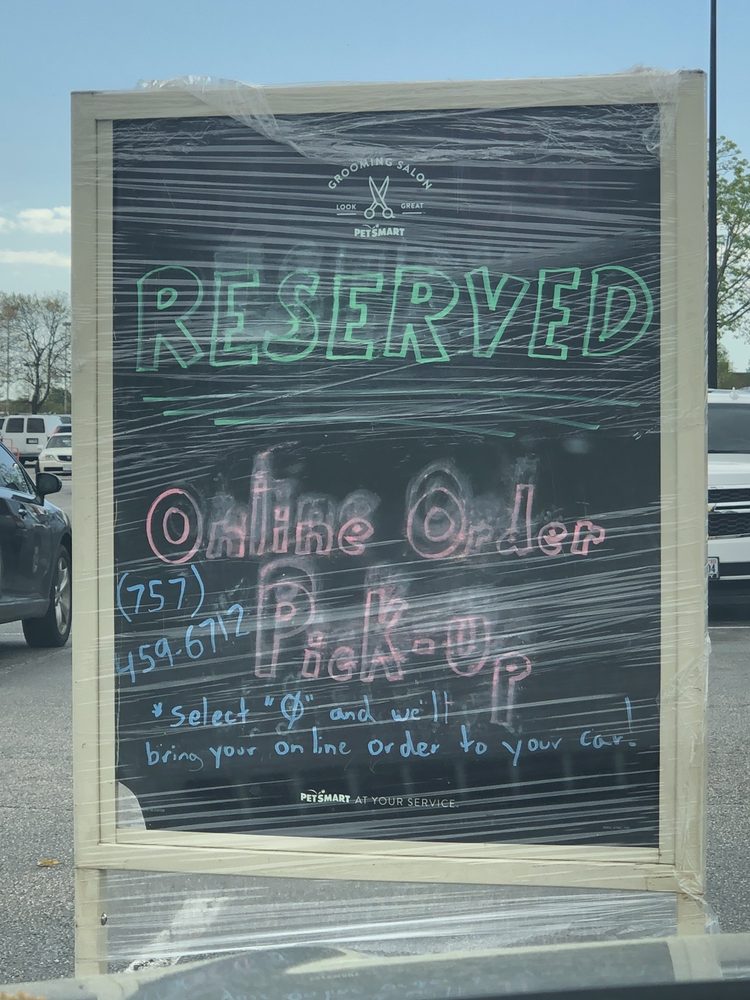 GROOMING SALON
LOOK GREAT
PETSMART
RESERVED
Online Order
(757)
459-6712
Pick-Up
*select "Ø" and we'll
bring your online order to your car!
PETSMART AT YOUR SERVICE